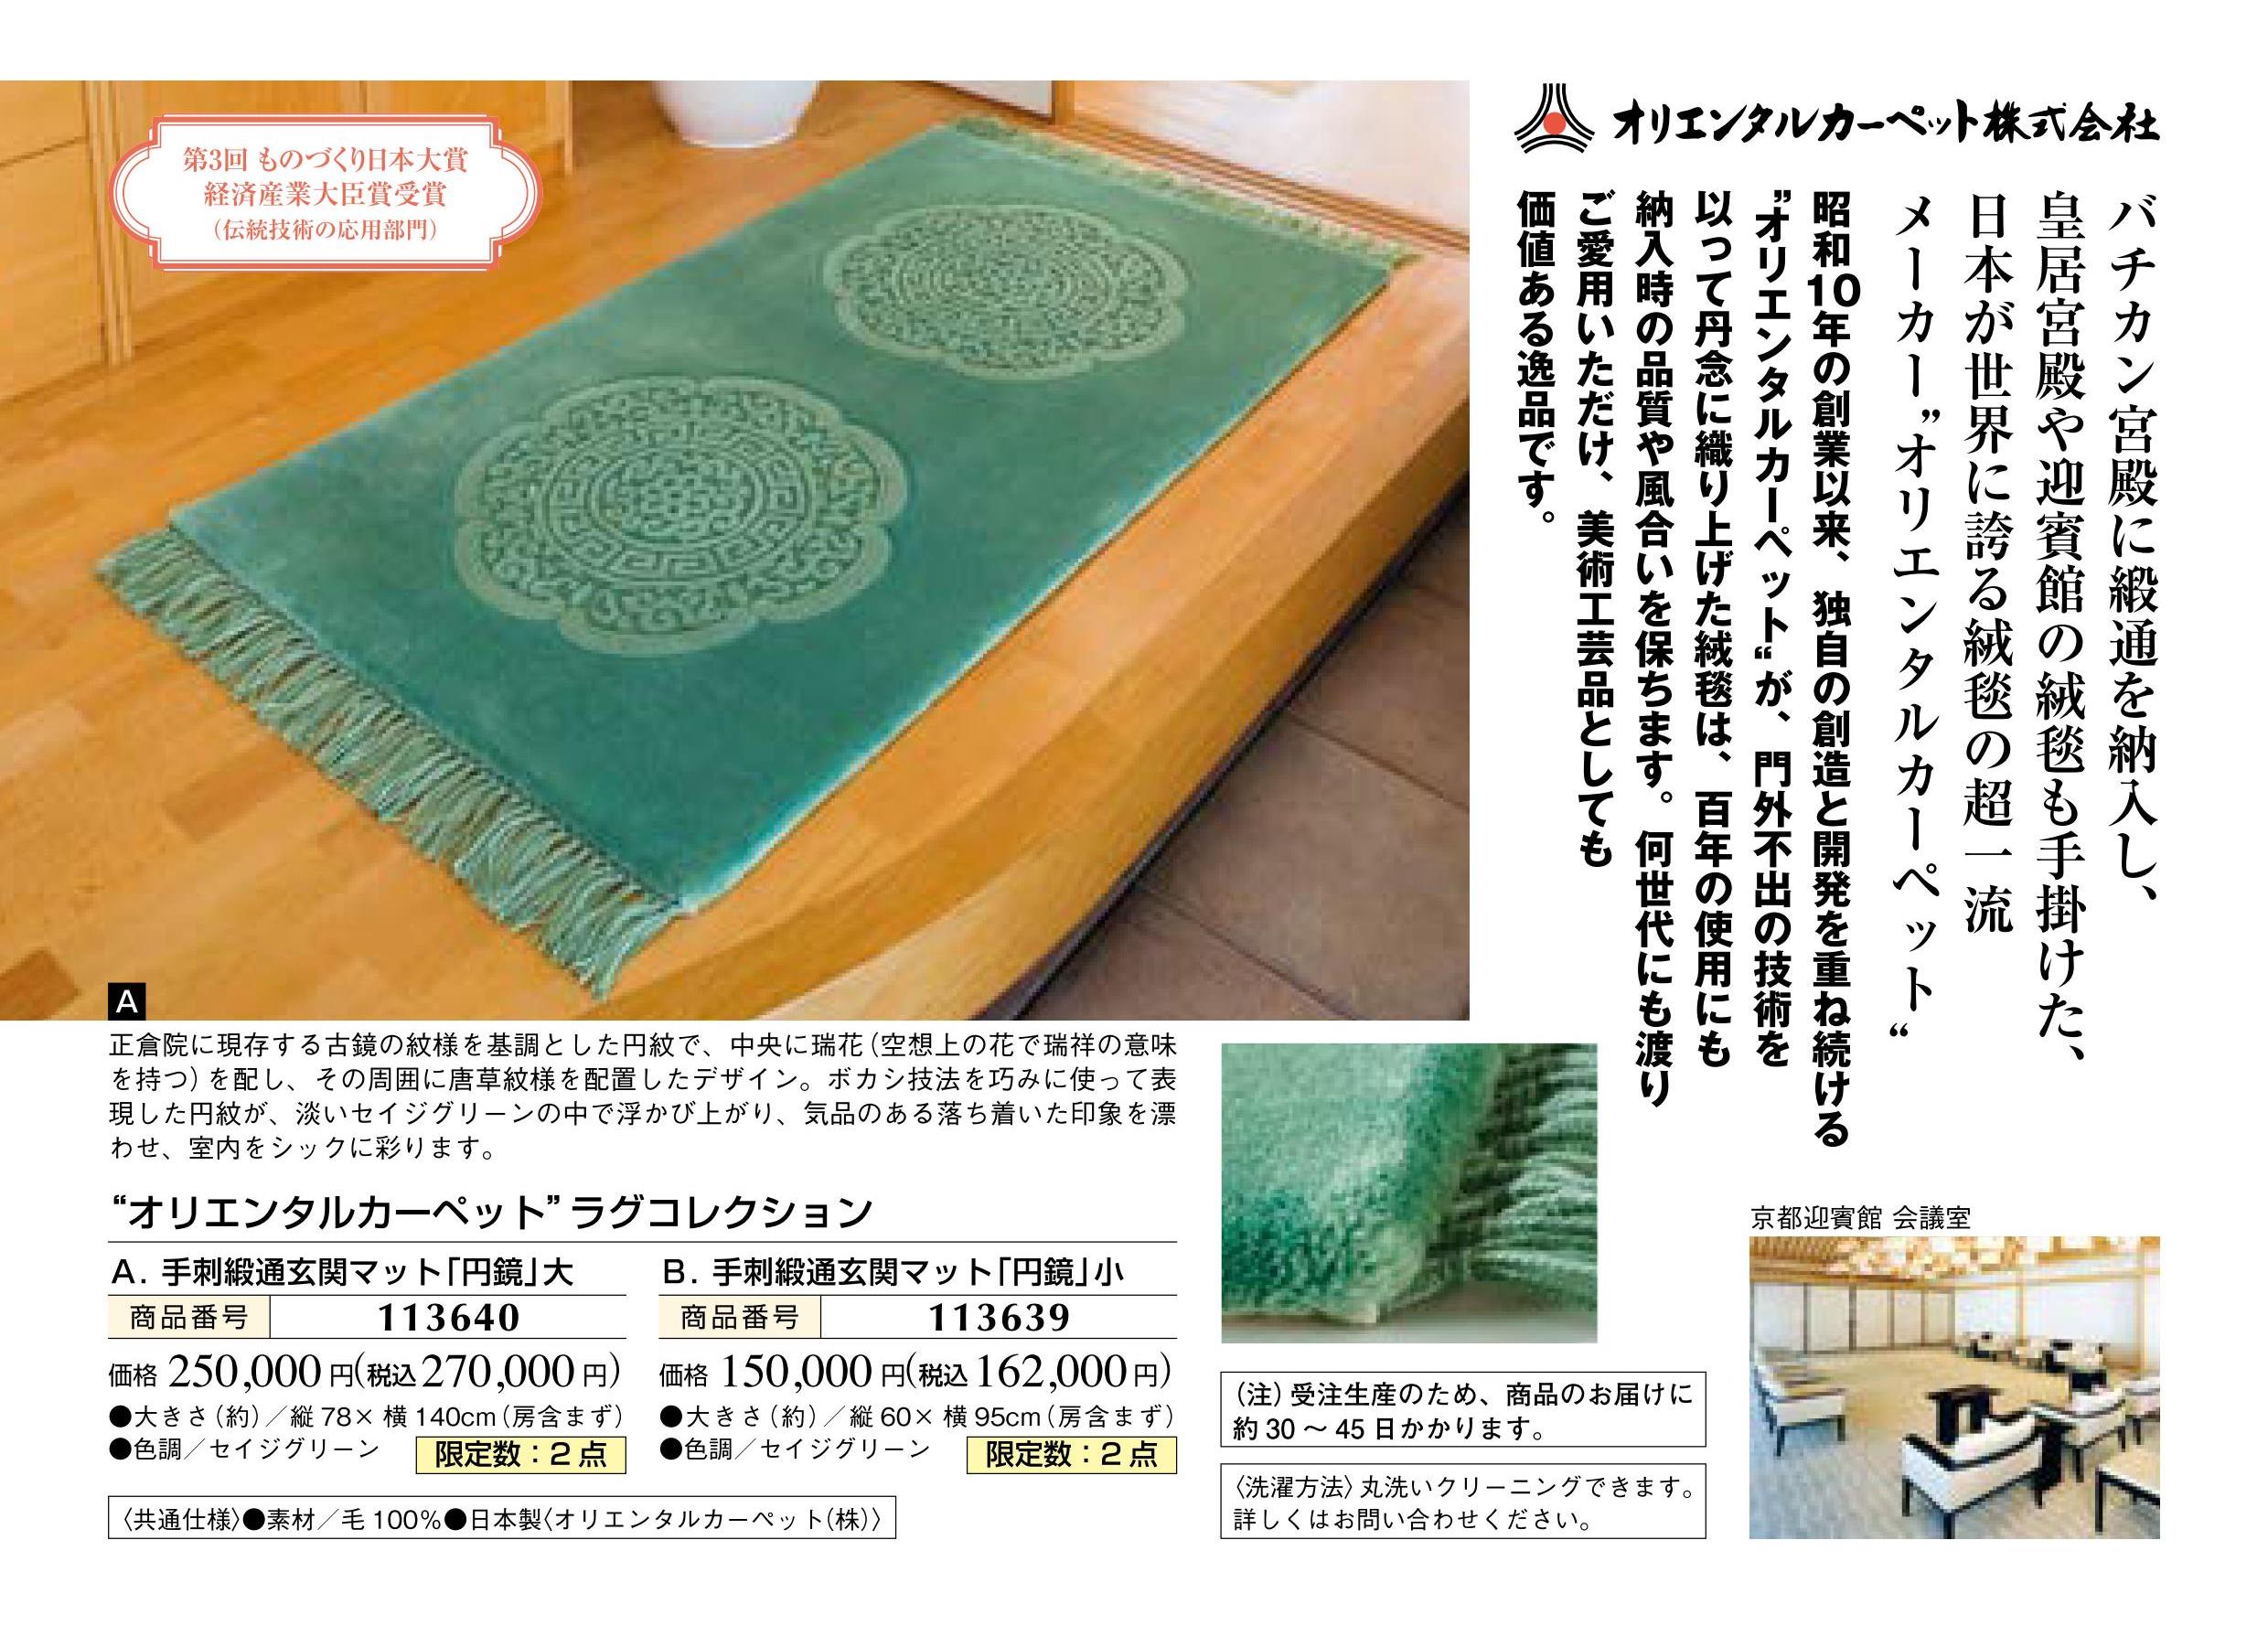 オリエンタルカーペット株式会社
バチカン宮殿に緞通を納入し、
皇居宮殿や迎賓館の絨毯も手掛けた、
日本が世界に誇る絨毯の超一流
メーカー”オリエンタルカーペット“
昭和10年の創業以来、独自の創造と開発を重ね続ける
”オリエンタルカーペット“が、門外不出の技術を
以って丹念に織り上げた絨毯は、百年の使用にも
納入時の品質や風合いを保ちます。何世代にも渡り
ご愛用いただけ、美術工芸品としても
価値ある逸品です。
第3回 ものづくり日本大賞
経済産業大臣賞受賞
（伝統技術の応用部門）
A
正倉院に現存する古鏡の紋様を基調とした円紋で、中央に瑞花（空想上の花で瑞祥の意味
を持つ）を配し、その周囲に唐草紋様を配置したデザイン。ボカシ技法を巧みに使って表
現した円紋が、淡いセイジグリーンの中で浮かび上がり、気品のある落ち着いた印象を漂
わせ、室内をシックに彩ります。
“オリエンタルカーペット”ラグコレクション
A. 手刺緞通玄関マット「円鏡」大
商品番号 113640
価格 250,000円（税込270,000円）
●大きさ（約）／縦78×横140cm（房含まず）
●色調／セイジグリーン 限定数：2点
B. 手刺緞通玄関マット「円鏡」小
商品番号 113639
価格 150,000円（税込162,000円）
●大きさ（約）／縦60×横95cm（房含まず）
●色調／セイジグリーン 限定数：2点
〈共通仕様〉●素材／毛100%●日本製〈オリエンタルカーペット（株）〉
（注）受注生産のため、商品のお届けに
約30～45日かかります。
〈洗濯方法〉丸洗いクリーニングできます。
詳しくはお問い合わせください。
京都迎賓館 会議室